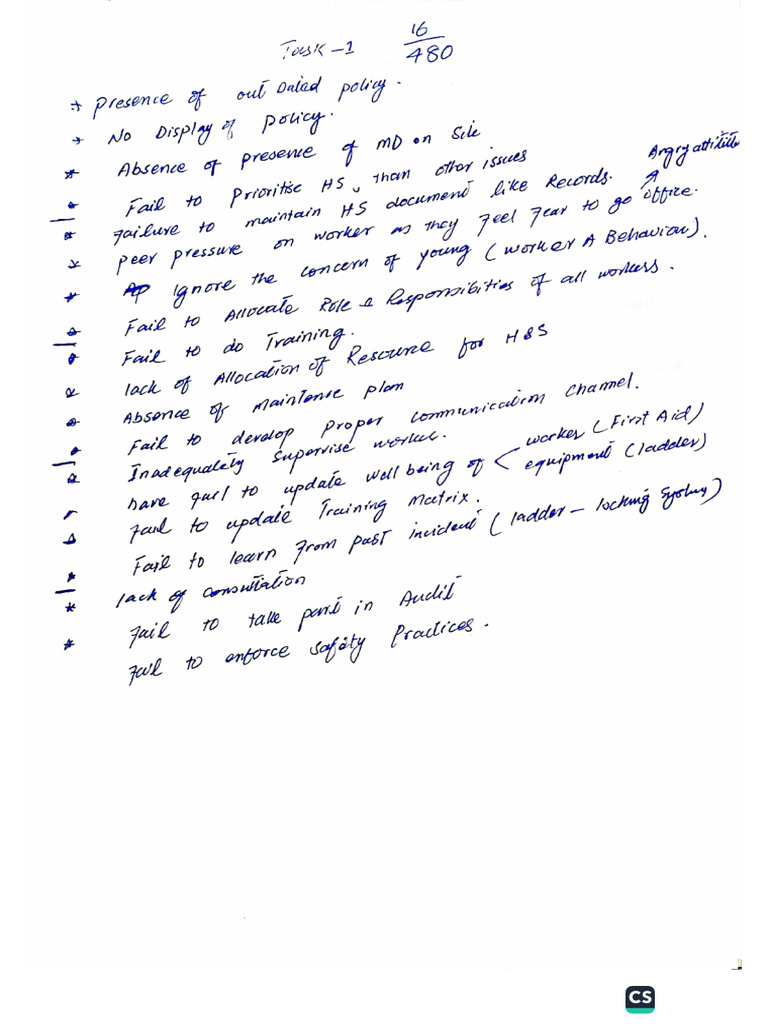 Task-1 16/480
* Presence of out Dated policy.
* No Display of policy.
* Absence of presence of MD on Site
* Fail to Prioritise HS, than other issues
* Failure to maintain HS document like Records. Angry attitude
* peer pressure on worker as they Feel Fear to go office.
* Ignore the concern of young (worker A Behavior).
* Fail to Allocate Role & Responsibities of all workers.
* Fail to do Training.
* lack of Allocation of Resource for H&S
* Absence of maintense plan
* Fail to develop proper communication channel.
* Inadequately Supervise worker.
* have fail to update well being of < worker (First Aid)
equipment (ladder)
* fail to update Training Matrix.
* Fail to learn from past incident (ladder - locking System)
* lack of consultation
* fail to take part in Audit
fail to enforce safety Practices.
CS